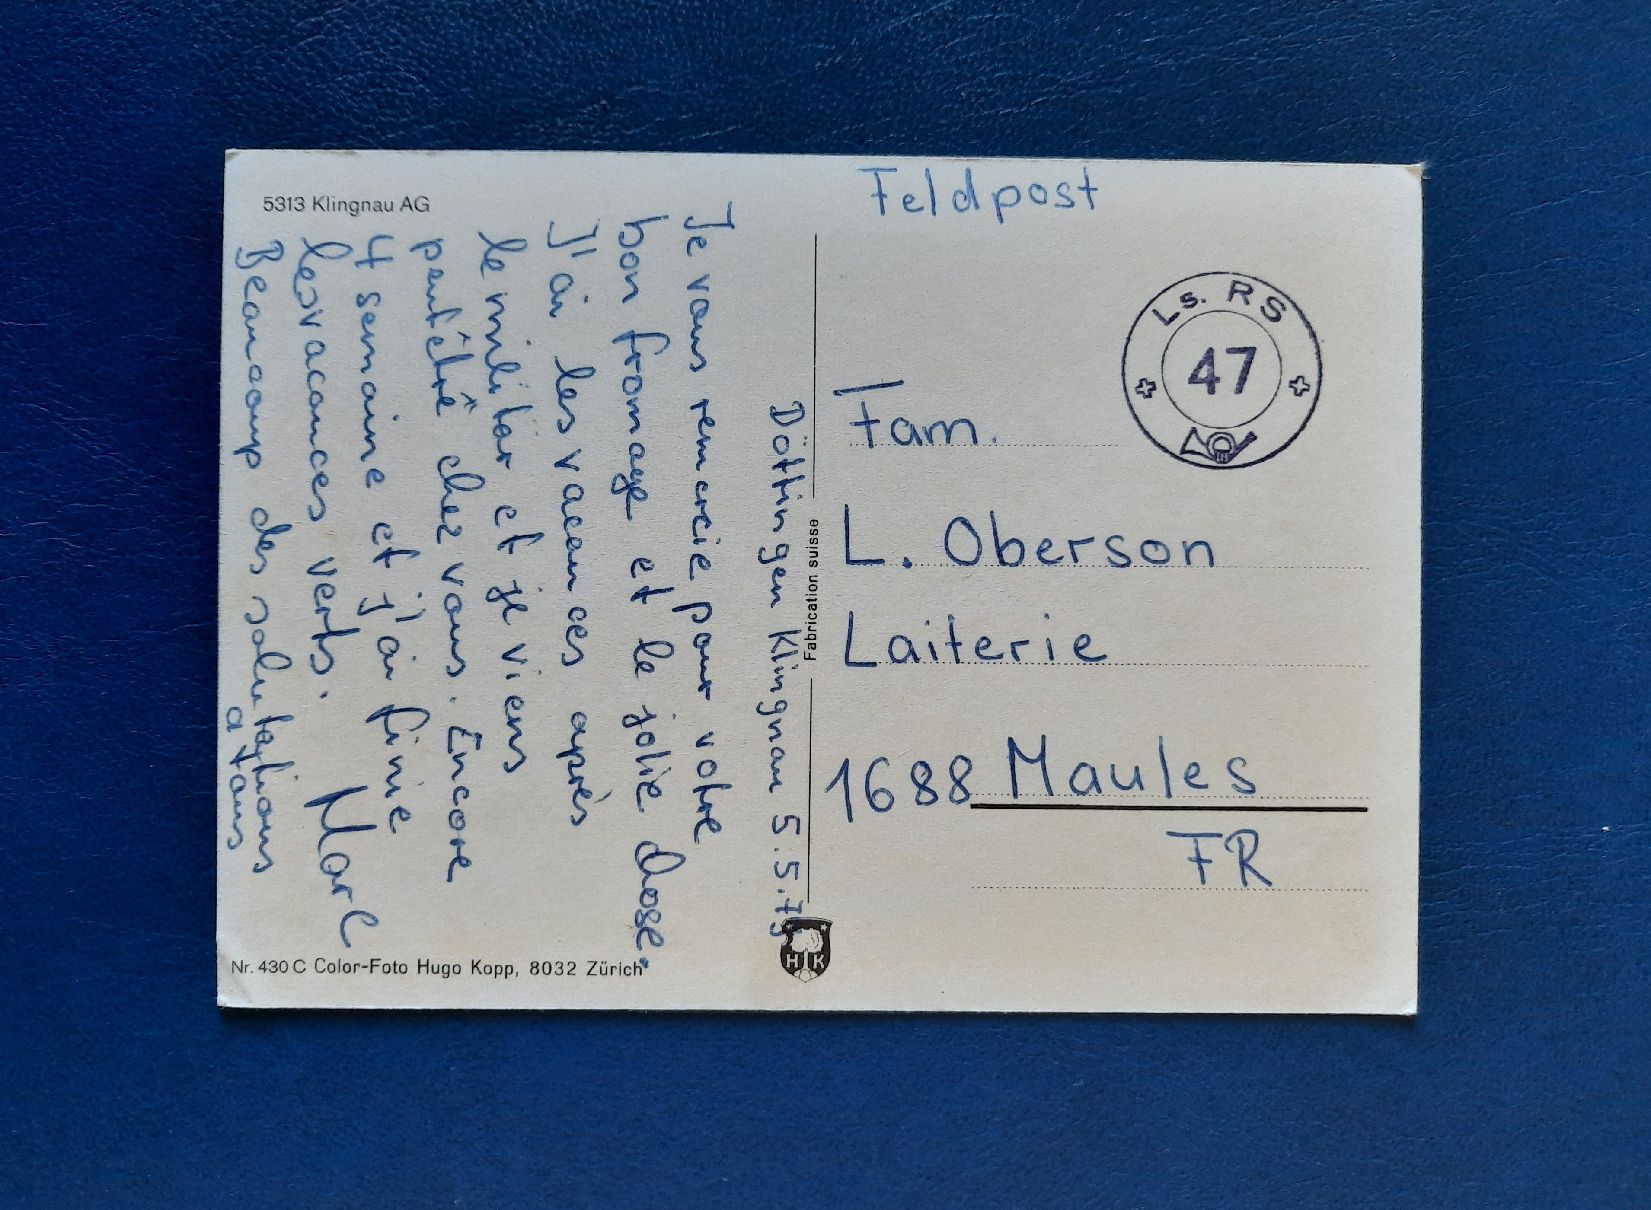 5313 Klingnau AG
Döttingen Klingnau 5.5.79
Je vous remercie pour votre
bon fromage et le jolie chose.
J'ai les vacances après
le militär et je viens
peutêtre chez vous. Encore
4 semaine et j'ai finie
les vacances verts.
Beaucoup des salutations
a tous
Marc
Nr. 430 C Color-Foto Hugo Kopp, 8032 Zürich
Fabrication suisse
H K
Feldpost
Ls. RS
47
Fam.
L. Oberson
Laiterie
1688 Maules
FR